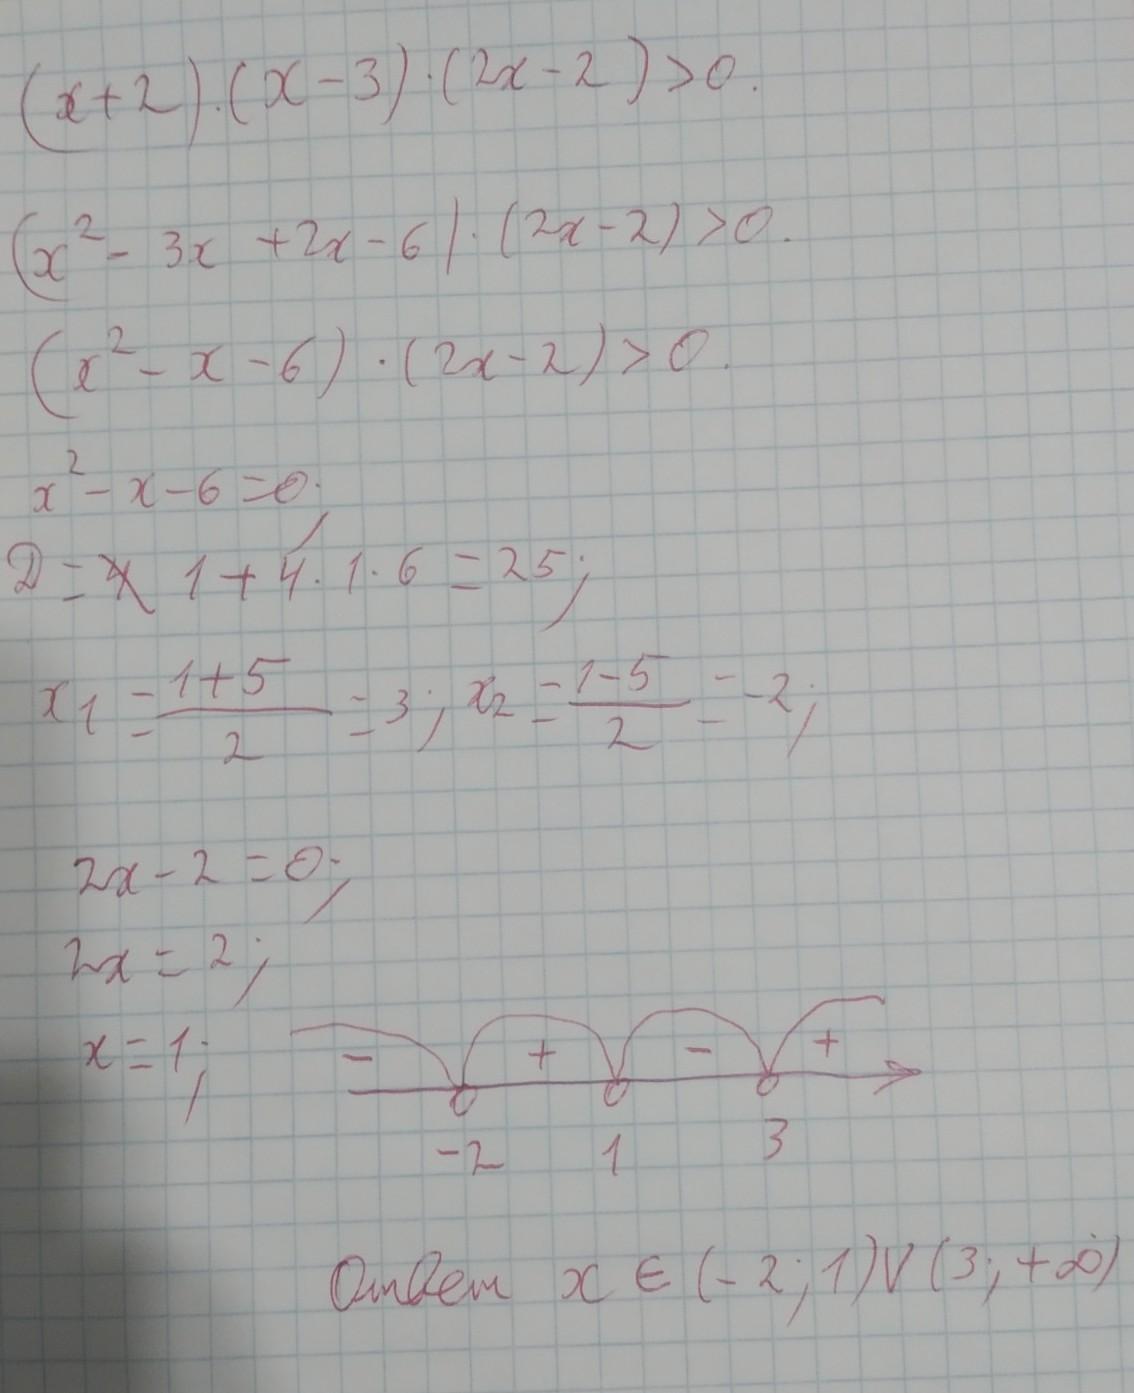 (x+2)·(x-3)·(2x-2)>0.
(x²-3x+2x-6)·(2x-2)>0.
(x²-x-6)·(2x-2)>0.
x²-x-6=0;
D= 1+4·1·6=25;
x₁=(1+5)/2=3; x₂=(1-5)/2=-2;
2x-2=0;
2x=2;
x=1;
- + - +
-2 1 3
Ответ x∈(-2;1)∨(3;+∞)